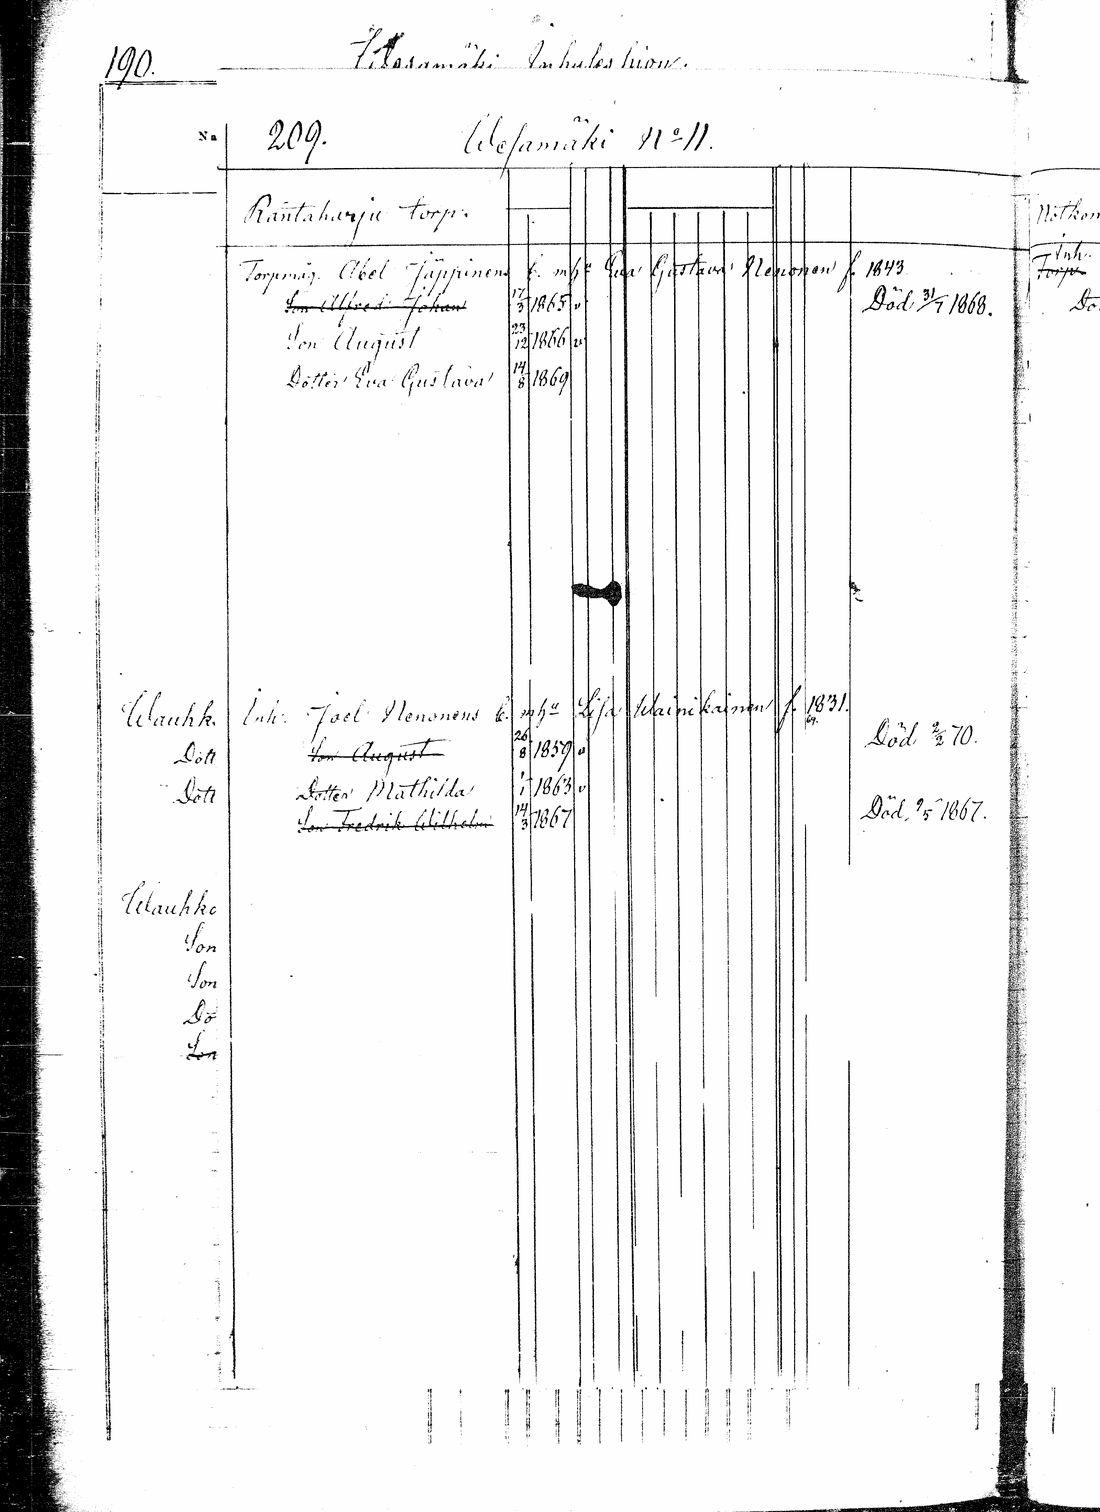 190.
Wesamäki Inhuleshion.
No
209.
Wesamäki No 11.
Rantaharju torp.
Torpmäg. Abel Jäppinens E. mhu Eva Gustava Nenonen f. 1843
Son Alfred Johan 17/3 1865 v Död 31/7 1868.
Son August 23/12 1866 v
Dotter Eva Gustava 14/8 1869
Inh. Joel Nenonens E. mhu Lisa Wainikainen f. 1831.
Son August 26/8 1859 v Död 2/2 70.
Dotter Mathilda 1/1 1863 v
Son Fredrik Wilhelm 14/3 1867 Död 9/5 1867.
Wauhk.
Dött
Dött
Wauhko
Son
Son
Dö
Son
Inh.
Torp.
Dö